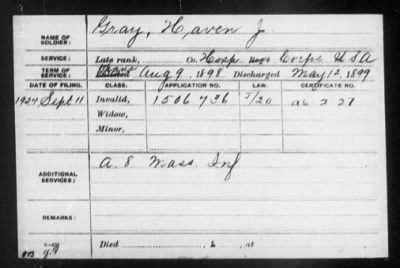 NAME OF SOLDIER: Gray, Haven J.
SERVICE: Late rank, Co. Hosp Reg't Corps U S A
TERM OF SERVICE: Enlisted Aug 9, 1898. Discharged May 12, 1899
DATE OF FILING. CLASS. APPLICATION NO. LAW. CERTIFICATE NO.
1924 Sept 11 Invalid, 1506 736
Widow,
Minor,
ADDITIONAL SERVICES: A. 8 Mass. Inf
REMARKS:
Died , 1 , at